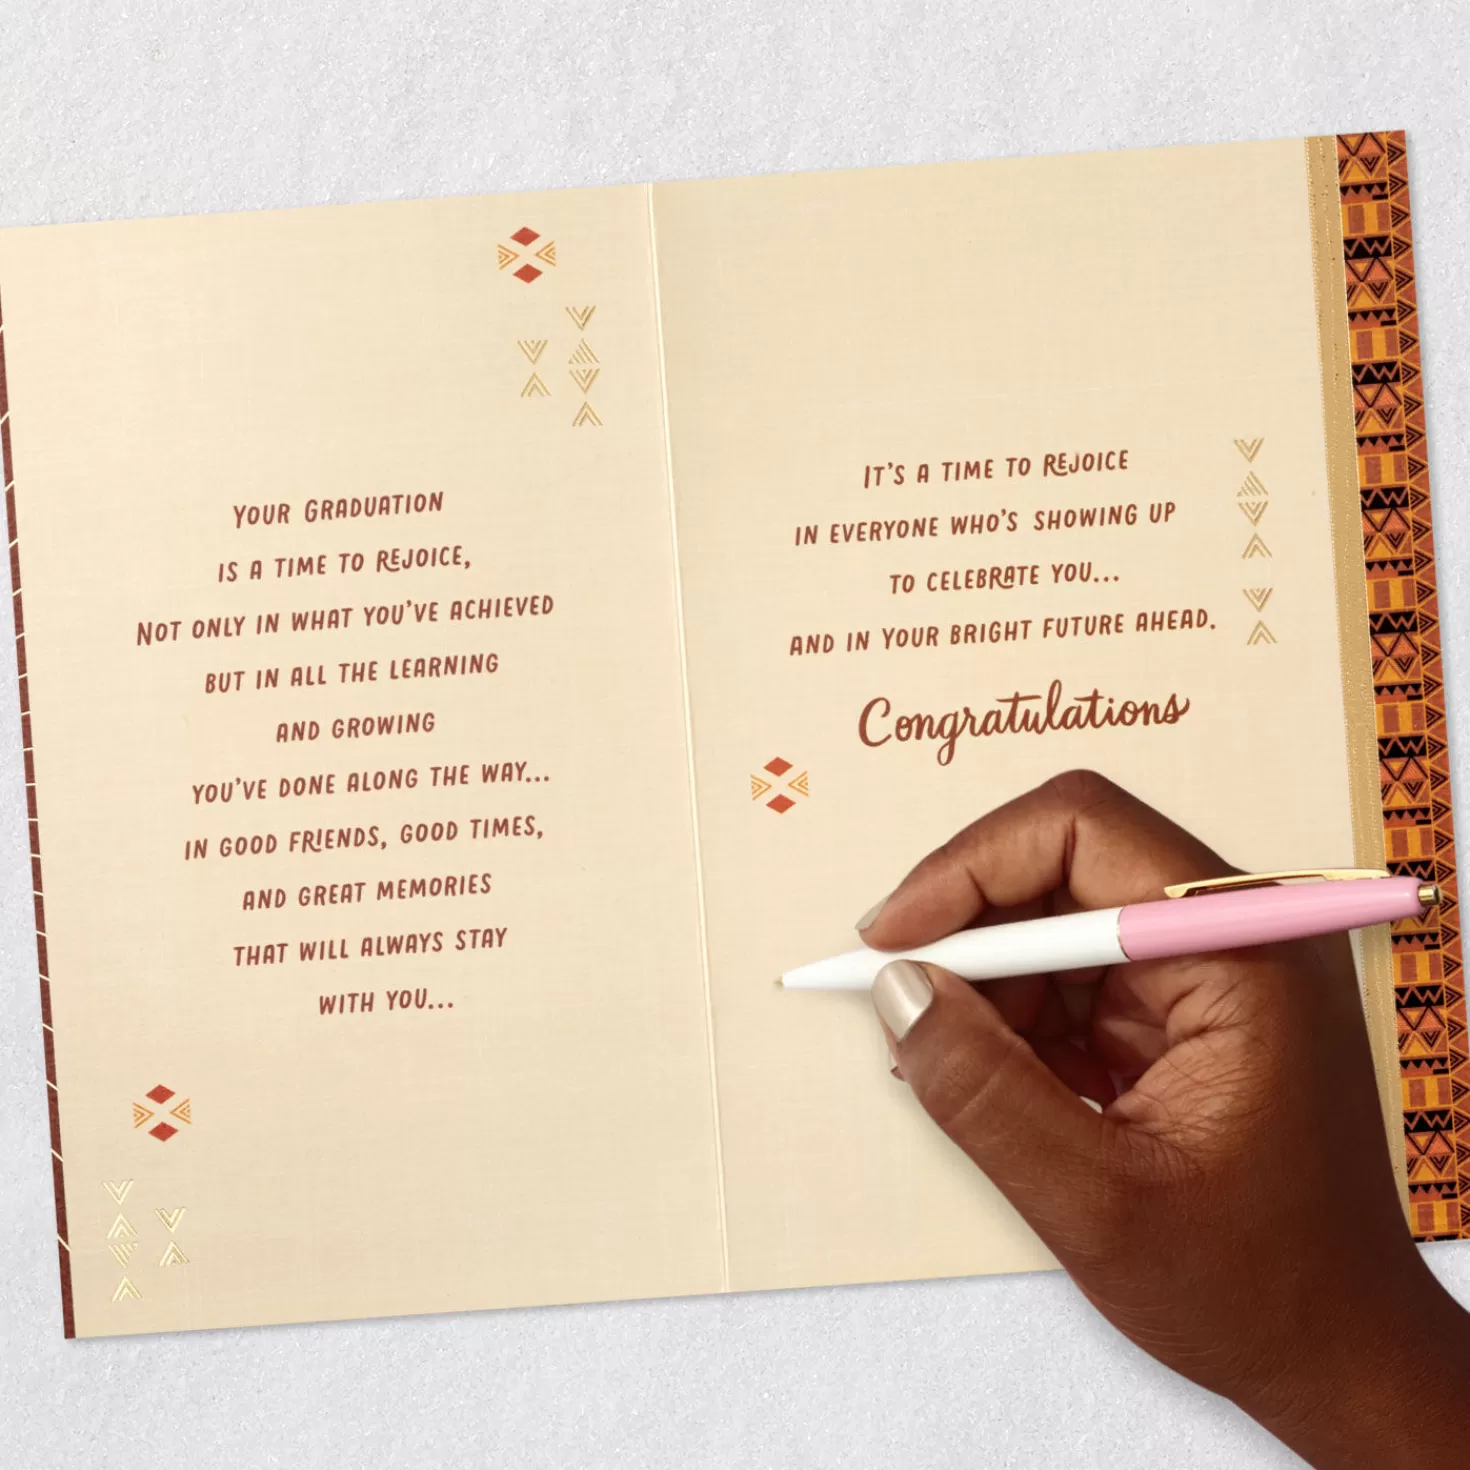 YOUR GRADUATION
IS A TIME TO REJOICE,
NOT ONLY IN WHAT YOU'VE ACHIEVED
BUT IN ALL THE LEARNING
AND GROWING
YOU'VE DONE ALONG THE WAY...
IN GOOD FRIENDS, GOOD TIMES,
AND GREAT MEMORIES
THAT WILL ALWAYS STAY
WITH YOU...
IT'S A TIME TO REJOICE
IN EVERYONE WHO'S SHOWING UP
TO CELEBRATE YOU...
AND IN YOUR BRIGHT FUTURE AHEAD.
Congratulations